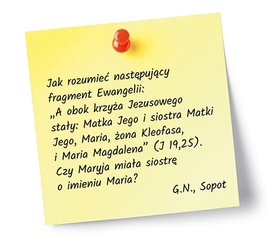 Jak rozumieć następujący
fragment Ewangelii:
„A obok krzyża Jezusowego
stały: Matka Jego i siostra Matki
Jego, Maria, żona Kleofasa,
i Maria Magdalena” (J 19,25).
Czy Maryja miała siostrę
o imieniu Maria?
G.N., Sopot